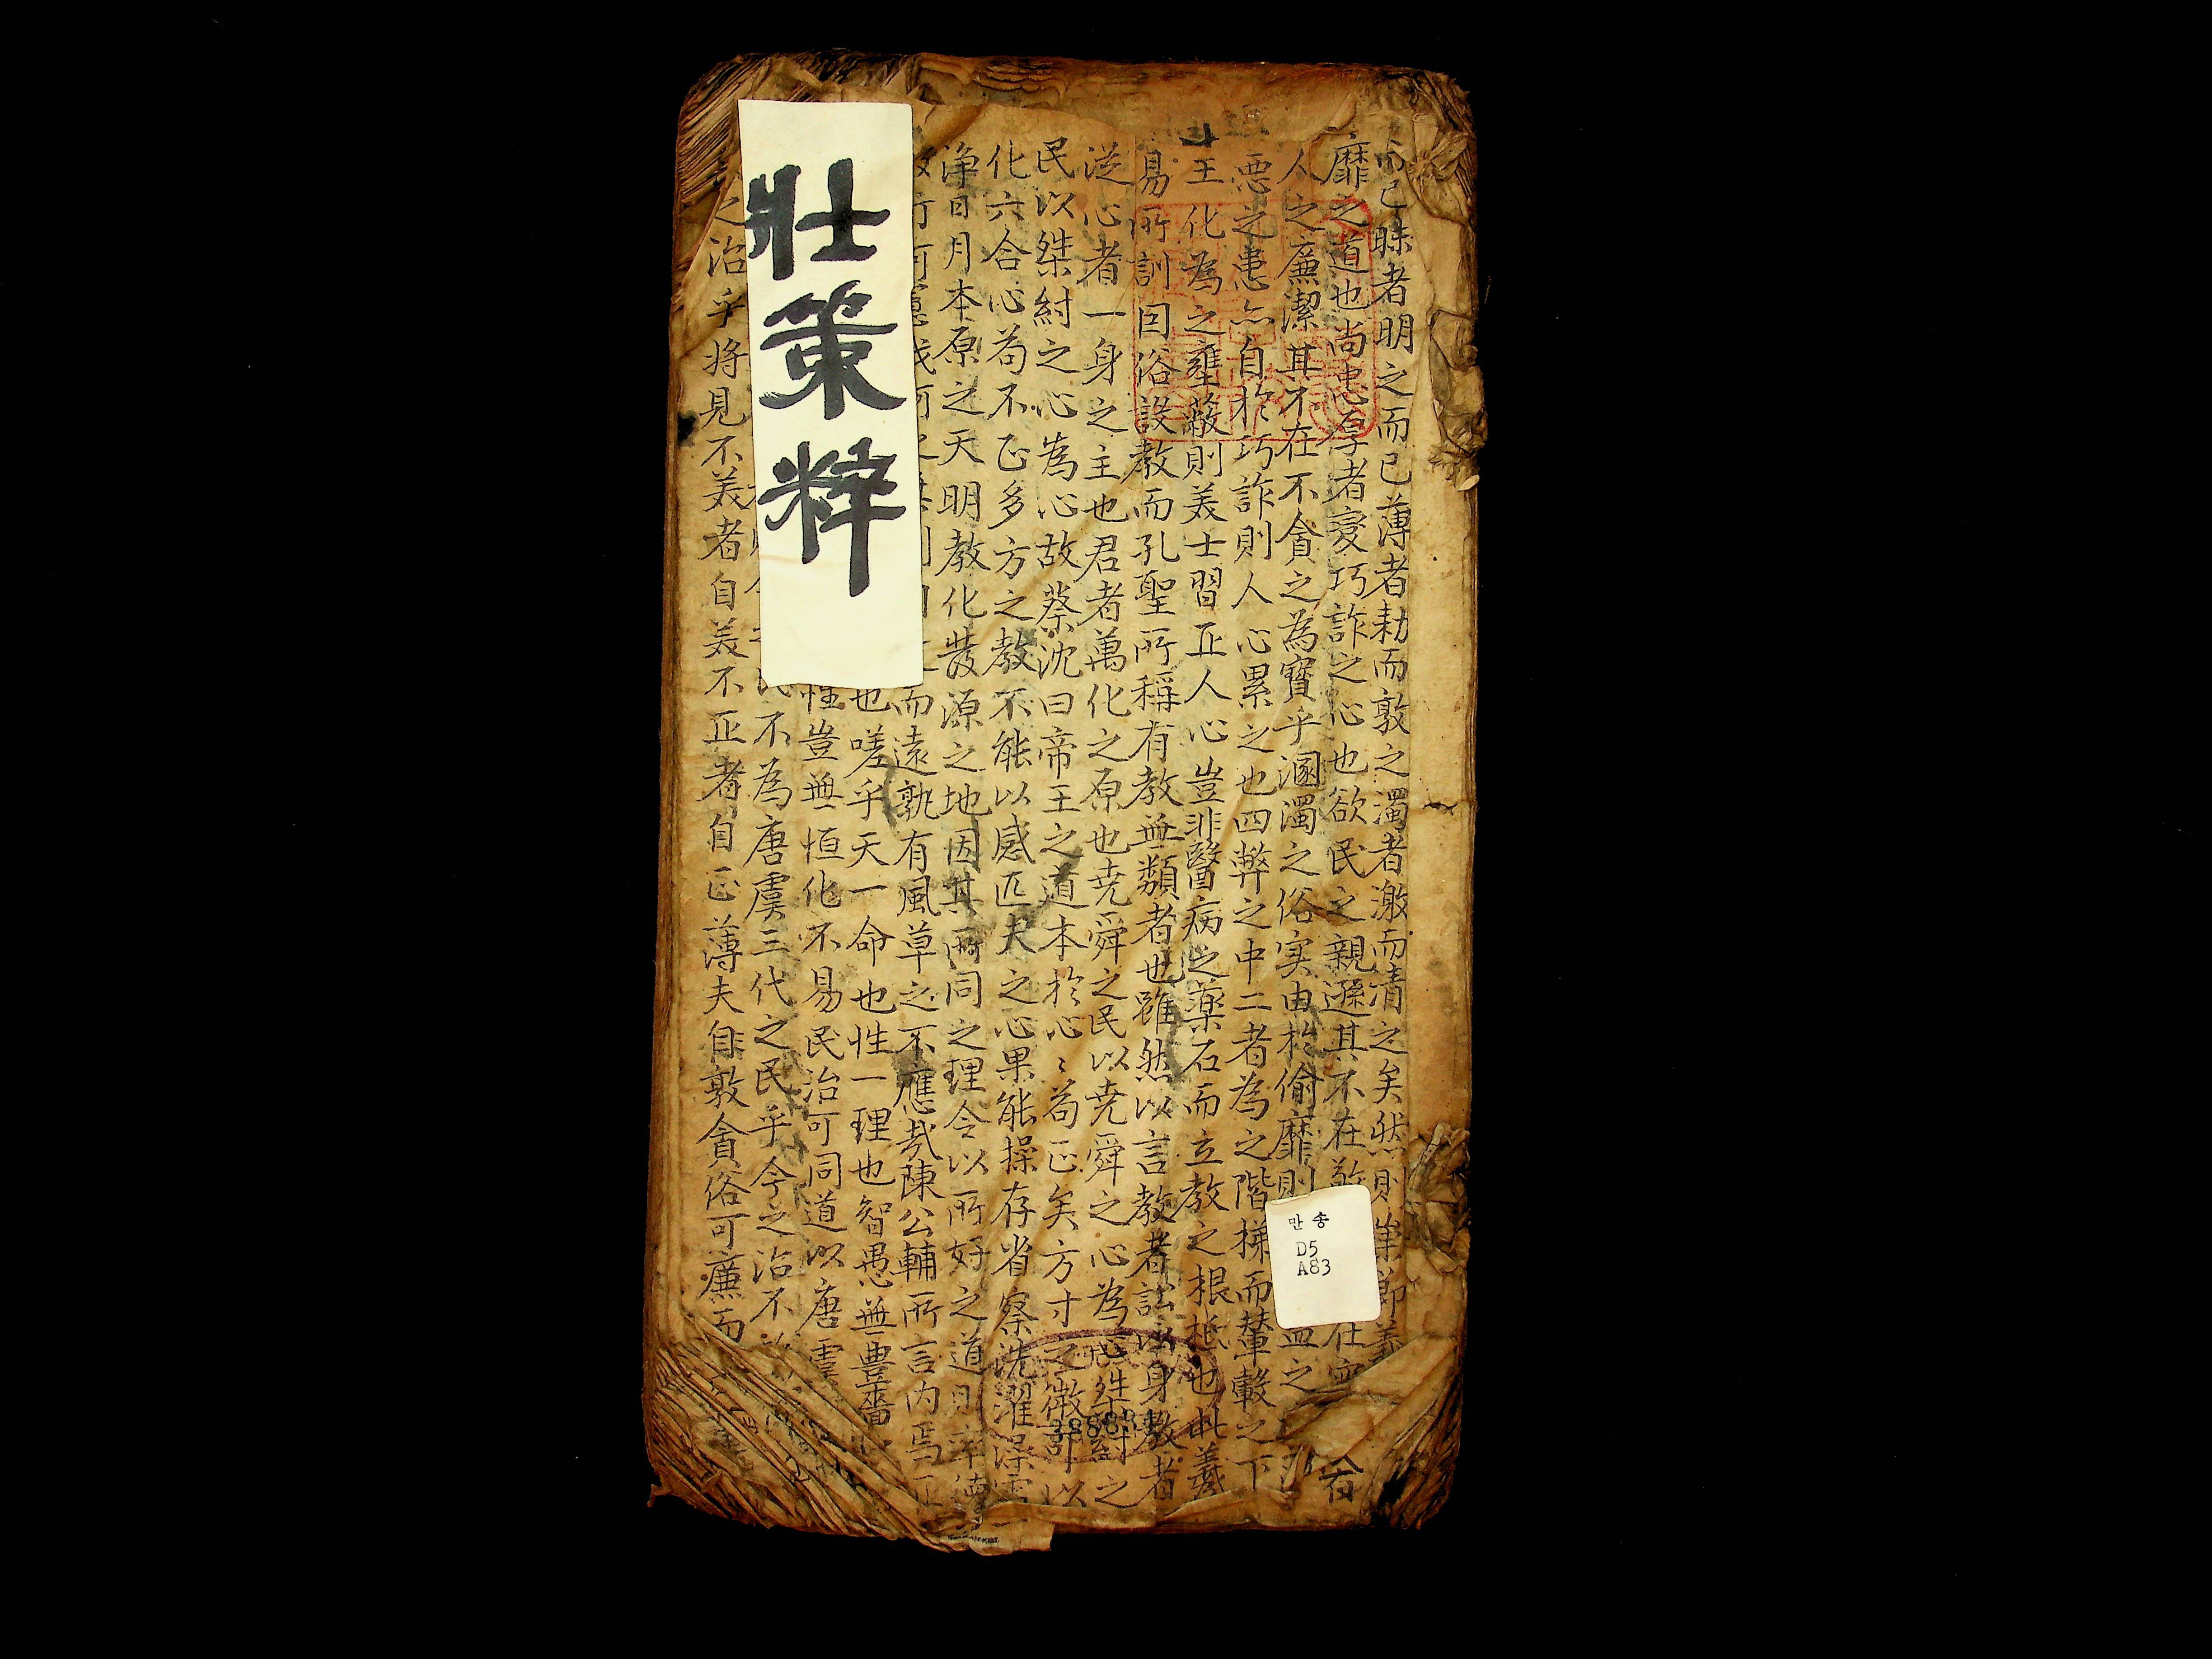 而已昧者明之而已薄者勑而敦之濁者激而清之矣然則
靡之道也尚忠厚者変巧詐之心也欲民之親遜其不在
人之廉潔其不在不貪之為寶乎溷濁之俗实由於偷靡則
悪之患亦自於巧詐則人心累之也四弊之中二者為之階梯而輦轂之下
王化為之壅蔽則美士習正人心豈非醫病之藥石而立教之根柢也此義
易所訓因俗設教而孔聖所稱有教無類者也雖然以言教者訟以身教者
從心者一身之主也君者萬化之原也尭舜之民以尭舜之心為心桀紂之
民以桀紂之心為心故蔡沈曰帝王之道本於心〻苟正矣方寸之微可以
化六合心苟不正多方之教不能以感匹夫之心果能操存省察洗濯澡雪
淨日月本原之天明教化發源之地因其所同之理令以所好之道
而遠孰有風草之不應㢤陳公輔所言内焉正
也嗟乎天一命也性一理也智愚無豊嗇
性豈無恒化不易民治可同道以唐虞
民不為唐虞三代之民乎今之治不
之治乎将見不美者自美不正者自正薄夫自敦貪俗可廉而
壯策粹
만송
D5
A83
38883